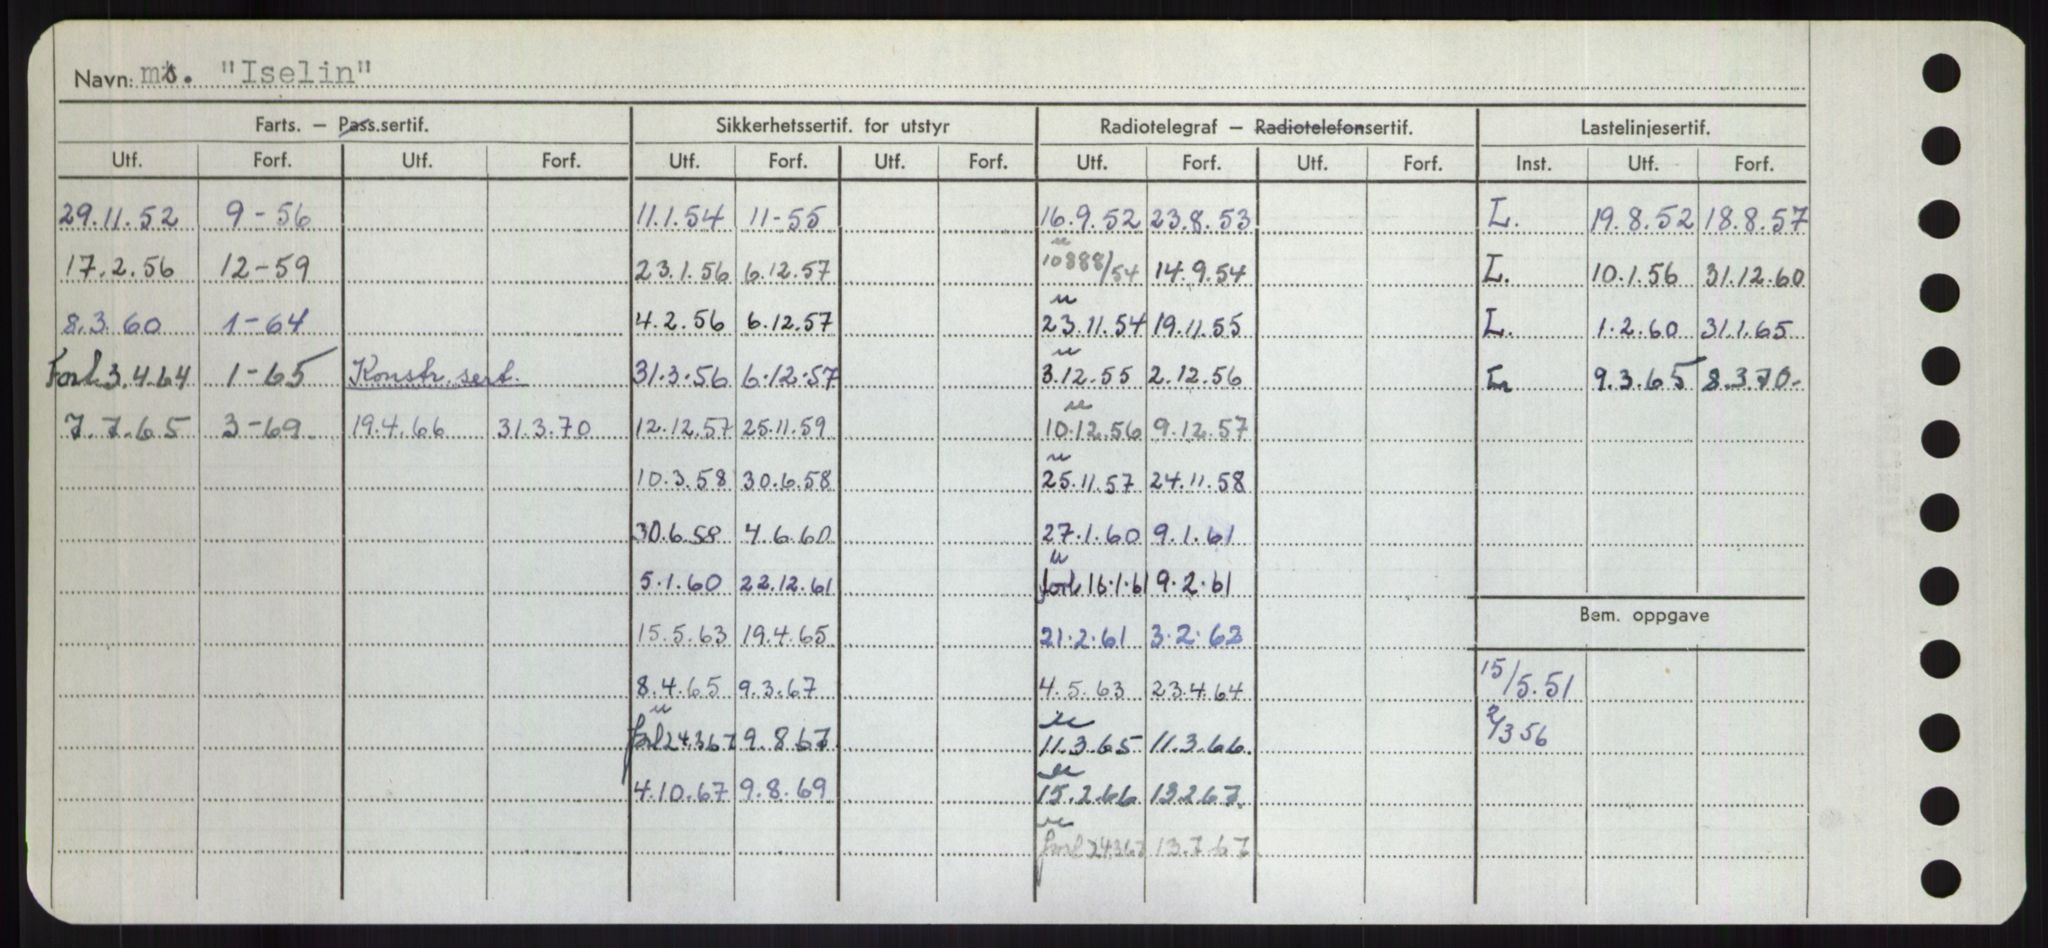 Navn: ms. "Iselin"
Farts. — Pass.sertif. Sikkerhetssertif. for utstyr Radiotelegraf — Radiotelefonsertif. Lastelinjesertif.
Utf. Forf. Utf. Forf. Utf. Forf. Utf. Forf. Utf. Forf. Utf. Forf. Inst. Utf. Forf.
29.11.52 9-56 11.1.54 11-55 16.9.52 23.8.53 L. 19.8.52 18.8.57
17.2.56 12-59 23.1.56 6.12.57 10888/54 14.9.54 L. 10.1.56 31.12.60
8.3.60 1-64 4.2.56 6.12.57 23.11.54 19.11.55 L. 1.2.60 31.1.65
Forl. 3.4.64 1-65 Konstr. sert. 31.3.56 6.12.57 3.12.55 2.12.56 L 9.3.65 8.3.70-
7.7.65 3-69 19.4.66 31.3.70 12.12.57 25.11.59 10.12.56 9.12.57
10.3.58 30.6.58 25.11.57 24.11.58
30.6.58 4.6.60 27.1.60 9.1.61
5.1.60 22.12.61 forl 16.1.61 9.2.61
Bem. oppgave
15.5.63 19.4.65 21.2.61 3.2.62
8.4.65 9.3.67 4.5.63 23.4.64 15/5.51
forl 24.3.67 9.8.67 11.3.65 11.3.66. 2/3 56
4.10.67 9.8.69 15.2.66 13.2.67.
forl 24.3.67 13.7.67